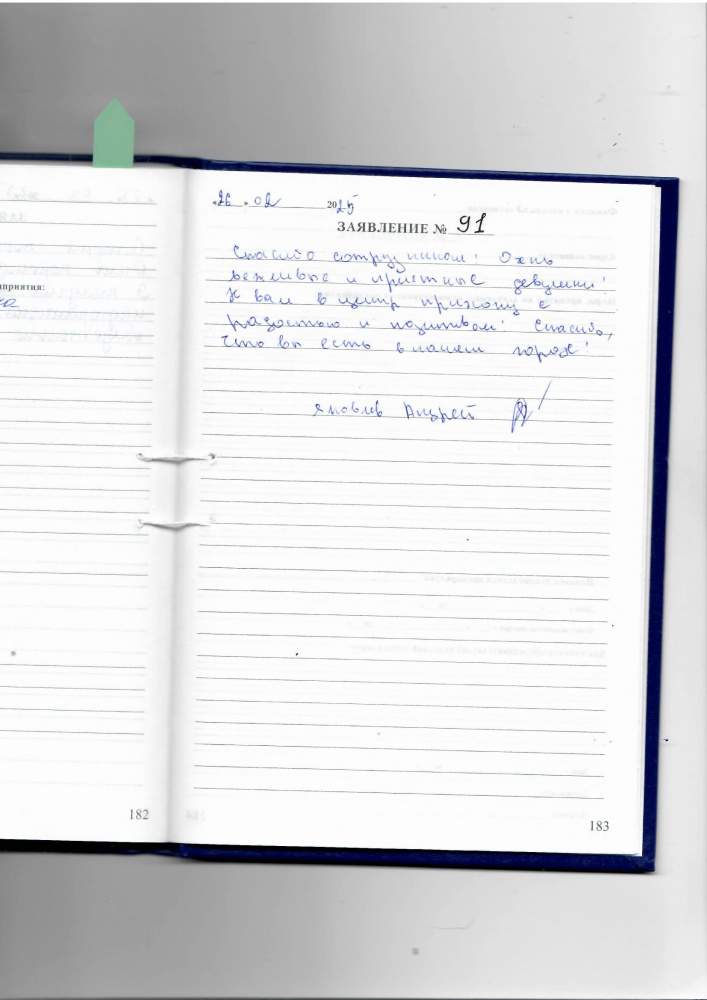 приятия:
«26» 02 2025
ЗАЯВЛЕНИЕ № 91
Спасибо сотрудникам! Очень
вежливые и приятные девушки!
К вам в центр прихожу с
радостью и позитивом! Спасибо,
что вы есть в нашем городе!
Яковлев Андрей
182
183